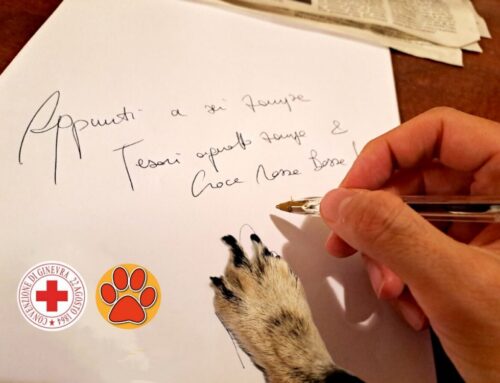 Appunti a sei zampe
Tesori a quattro zampe &
Croce Rossa
CONVENZIONE DI GINEVRA 22 AGOSTO 1864